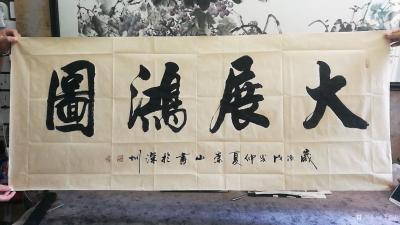 大展鴻圖
歲次戊戌仲夏崇山書於深圳